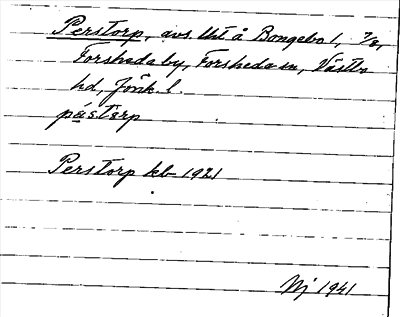 Perstorp, avs. lht å Bongebo 1, 7/8,
Forsheda by, Forsheda sn, Västbo
hd, Jönk. l.
pástǝrp
Perstorp kb 1921
Nj 1941